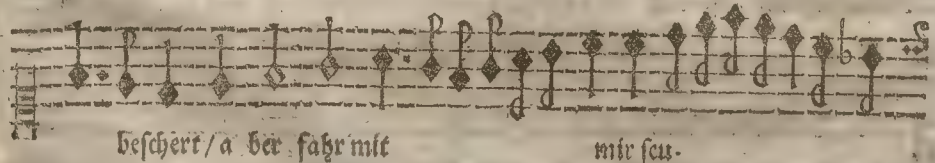 beschert / a ber fahr mit mir seu-